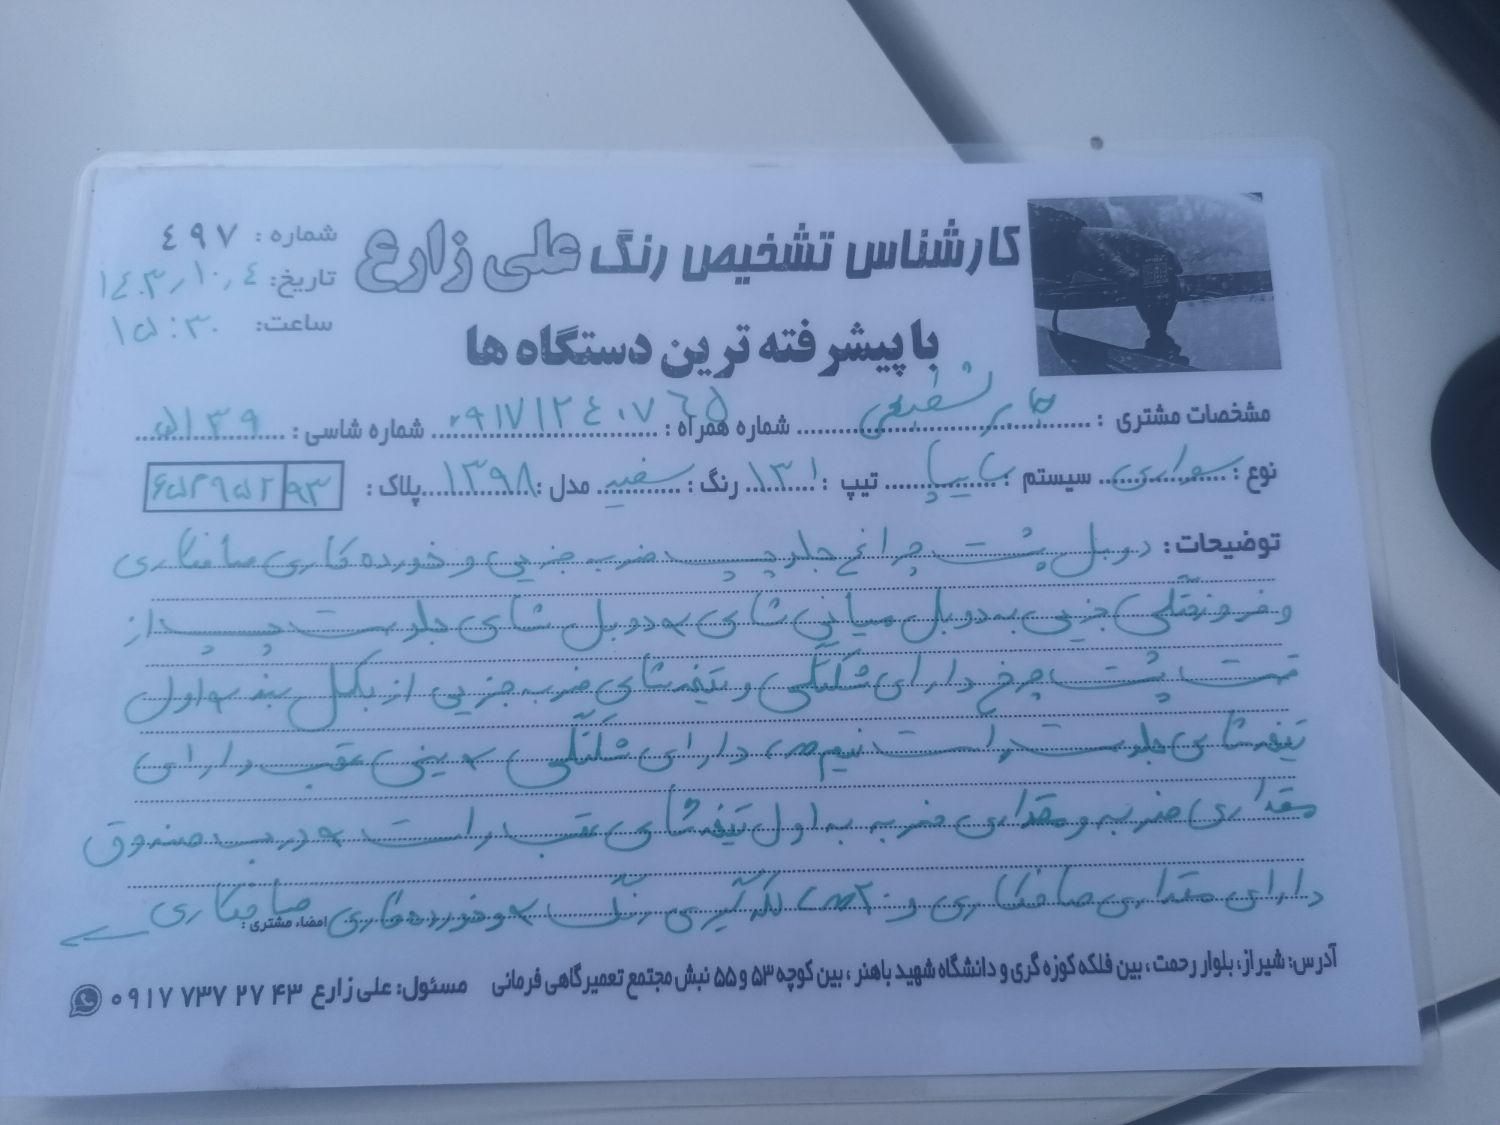 کارشناس تشخیص رنگ علی زارع
با پیشرفته ترین دستگاه ها
شماره : ٤٩٧
تاریخ: ١٤٠٣/١٠/٤
ساعت: ١٥:٣٠
مشخصات مشتری : جابر شفیعی شماره همراه : ٠٩١٧١٢٤٠٧٦٥ شماره شاسی : ٥١٣٩
نوع : سواری سیستم : سایپا تیپ : ١٣١ رنگ : سفید مدل : ١٣٩٨ پلاک : ٩٣
توضیحات : دوبل پشت چراغ جلو چپ ضربه جزیی و خورده کاری صافکاری
و فرورفتگی جزیی به دوبل میانی شاسی و دوبل شاسی جلو سمت چپ از
قسمت پشت چرخ دارای شکستگی و تیغه شاسی ضربه جزیی از بکل بند و اول
تیغه شاسی جلو سمت راست نیم دارای شکستگی و سینی عقب دارای
مقداری ضربه و مقداری ضربه به اول تیغه شاسی عقب راست و درب صندوق
دارای مقداری صافکاری و ٢ لکه گیری رنگ و خورده کاری صافکاری
امضاء مشتری :
آدرس: شیراز، بلوار رحمت ، بین فلکه کوزه گری و دانشگاه شهید باهنر ، بین کوچه ۵۳ و ۵۵ نبش مجتمع تعمیرگاهی فرمانی
مسئول: علی زارع ۰۹۱۷ ۷۳۷ ۲۷ ۴۳